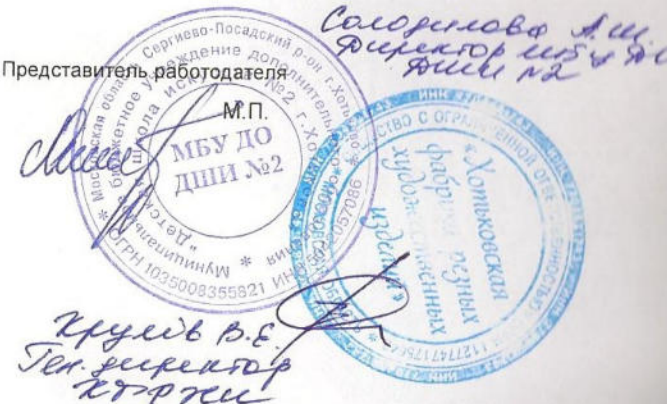 Солодилова А.Ш.
Директор МБУ ДО
ДШИ №2
Представитель работодателя
М.П.
Московская область Сергиево-Посадский р-он г.Хотьково
Муниципальное бюджетное учреждение дополнительного
"Детская школа искусств №2 г.Хотьково"
ОГРН 1035008355821 ИНН
МБУ ДО
ДШИ №2
ОБЩЕСТВО С ОГРАНИЧЕННОЙ ОТВЕТСТВЕННОСТЬЮ
"Хотьковская
фабрика резных
художественных
изделий"
В.Е.
Ген. директор
ХФРХИ